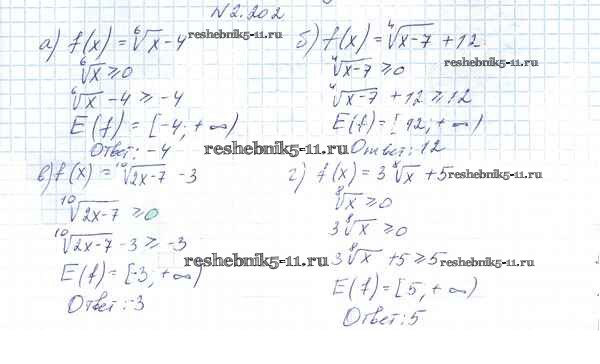 N2.202
а) f(x) = ⁶√x - 4
⁶√x ≥ 0
⁶√x - 4 ≥ -4
E(f) = [-4; +∞)
Ответ: -4
б) f(x) = ⁴√x-7 + 12
⁴√x-7 ≥ 0
⁴√x-7 + 12 ≥ 12
E(f) = [12; +∞)
Ответ: 12
в) f(x) = ¹⁰√2x-7 - 3
¹⁰√2x-7 ≥ 0
¹⁰√2x-7 - 3 ≥ -3
E(f) = [-3; +∞)
Ответ: -3
г) f(x) = 3⁸√x + 5
⁸√x ≥ 0
3⁸√x ≥ 0
3⁸√x + 5 ≥ 5
E(f) = [5; +∞)
Ответ: 5
reshebnik5-11.ru
reshebnik5-11.ru
reshebnik5-11.ru
reshebnik5-11.ru
reshebnik5-11.ru
reshebnik5-11.ru